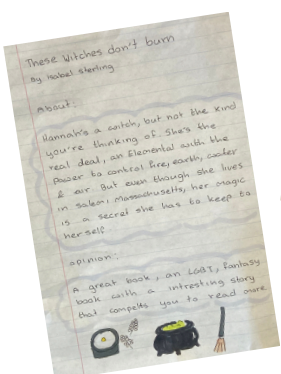 These Witches don't burn
By Isabel Sterling
About:
Hannah's a witch, but not the kind
you're thinking of. She's the
real deal, an Elemental with the
power to control fire, earth, water
& air. But even though she lives
in salem, Massachusetts, her magic
is a secret she has to keep to
herself
opinion:
A great book, an LGBT, fantasy
book with a intresting story
that compells you to read more